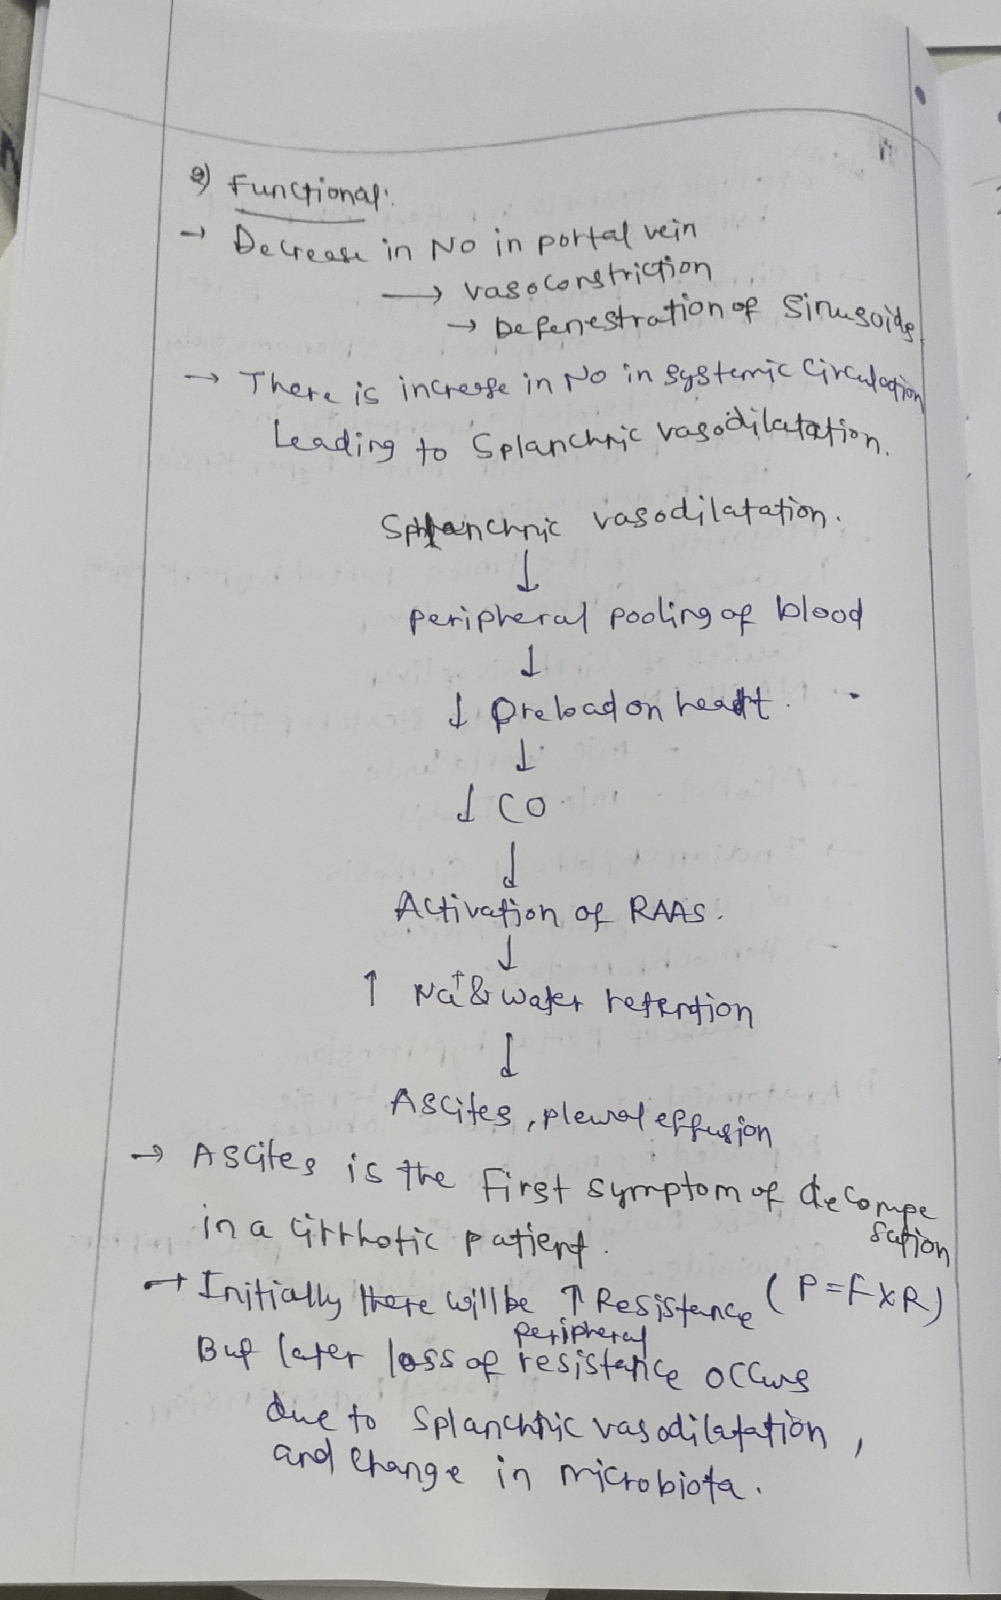 2) Functional:
→ Decrease in NO in portal vein
→ vasoconstriction
→ Defenestration of Sinusoids
→ There is increase in NO in systemic Circulation
Leading to Splanchnic vasodilatation.
Splanchnic vasodilatation.
↓
Peripheral pooling of blood
↓
↓ Preload on heart.
↓
↓ CO
↓
Activation of RAAS.
↓
↑ Na⁺ & water retention
↓
Ascites, pleural effusion
→ Ascites is the First symptom of decompe
sation
in a cirrhotic patient.
→ Initially there will be ↑ Resistance (P=FxR)
peripheral
But later loss of resistance occurs
due to splanchnic vasodilatation,
and change in microbiota.